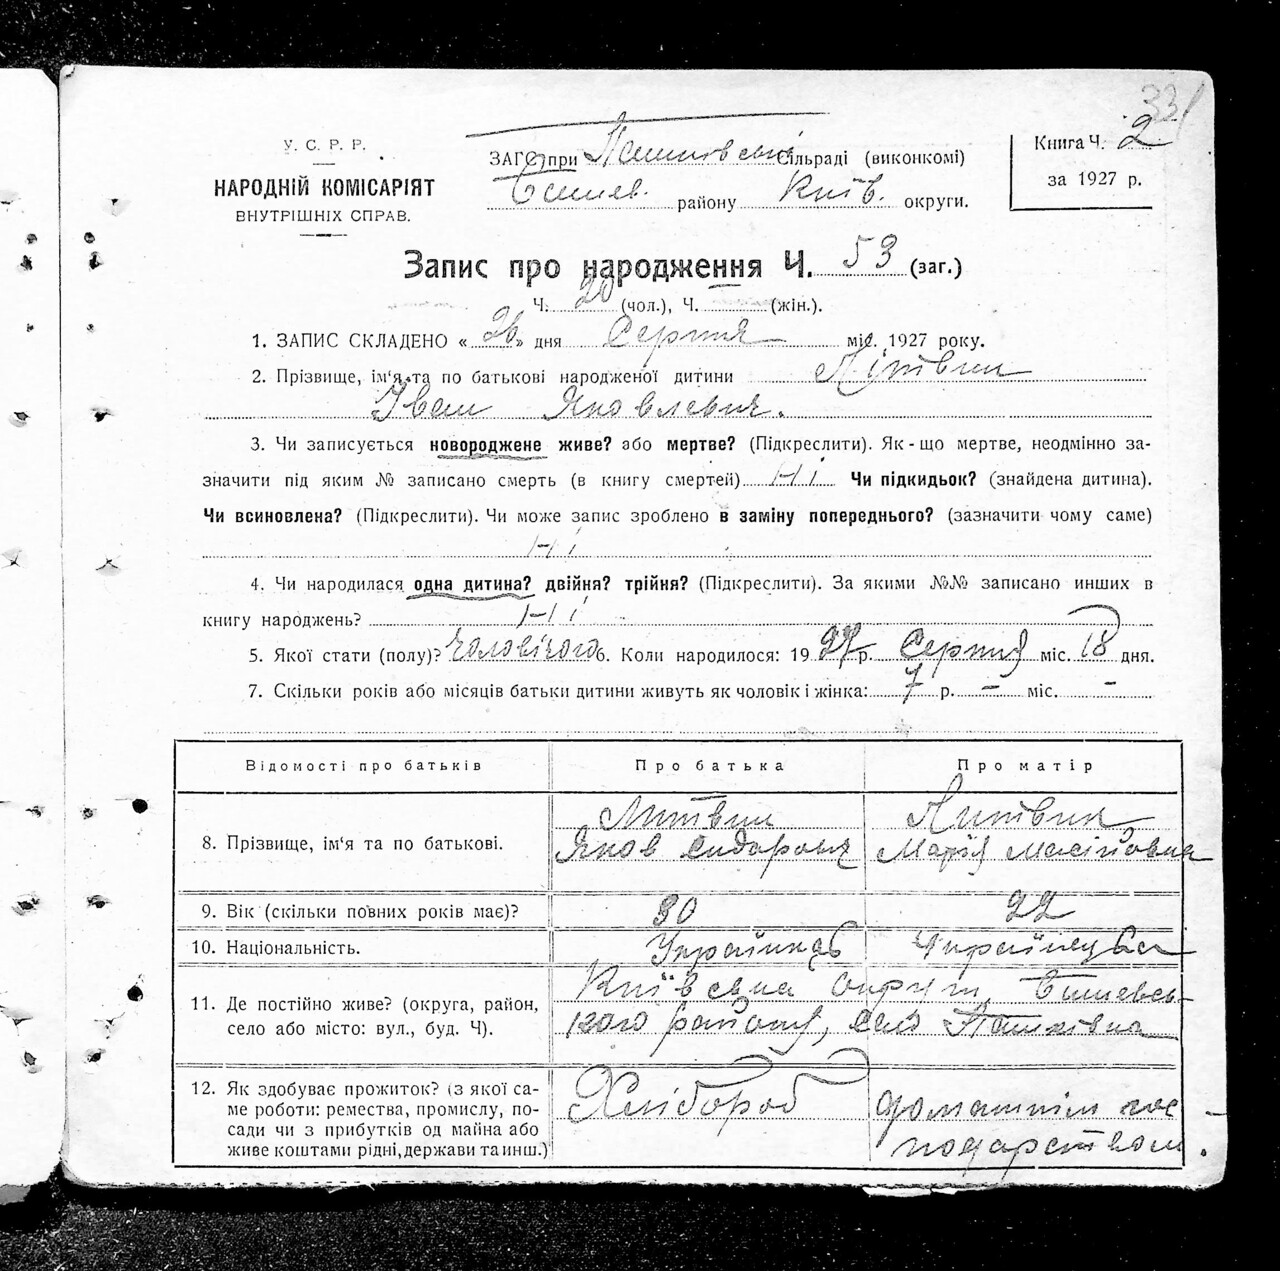 331
У. С. Р. Р.
НАРОДНІЙ КОМІСАРІЯТ
ВНУТРІШНІХ СПРАВ.
ЗАГС при Пашківській сільраді (виконкомі)
Бишев. району Київ. округи.
Книга Ч. 2
за 1927 р.
Запис про народження Ч. 53 (заг.)
Ч. 20 (чол.), Ч. (жін.).
1. ЗАПИС СКЛАДЕНО « 26 » дня Серпня міс. 1927 року.
2. Прізвище, ім'я та по батькові народженої дитини Літвин
Іван Яковлевич.
3. Чи записується новороджене живе? або мертве? (Підкреслити). Як-що мертве, неодмінно за-
значити під яким № записано смерть (в книгу смертей) Ні Чи підкидьок? (знайдена дитина).
Чи всиновлена? (Підкреслити). Чи може запис зроблено в заміну попереднього? (зазначити чому саме)
Ні
4. Чи народилася одна дитина? двійня? трійня? (Підкреслити). За якими №№ записано инших в
книгу народжень? Ні
5. Якої стати (полу)? чоловічого 6. Коли народилося: 1927 р. Серпня міс. 18 дня.
7. Скільки років або місяців батьки дитини живуть як чоловік і жінка: 7 р. – міс. –
Відомості про батьків Про батька Про матір
8. Прізвище, ім'я та по батькові. Литвин Яков Сидорович Литвин Марія
9. Вік (скільки повних років має)? 30 22
10. Національність. Українець Українська
11. Де постійно живе? (округа, район, село або місто: вул., буд. Ч). Київська округи, Бишевсь-
кого району, село Пашківка
12. Як здобуває прожиток? (з якої са-
ме роботи: ремества, промислу, по-
сади чи з прибутків од майна або
живе коштами рідні, держави та инш.) Хлібороб домашнім гос
подарством.